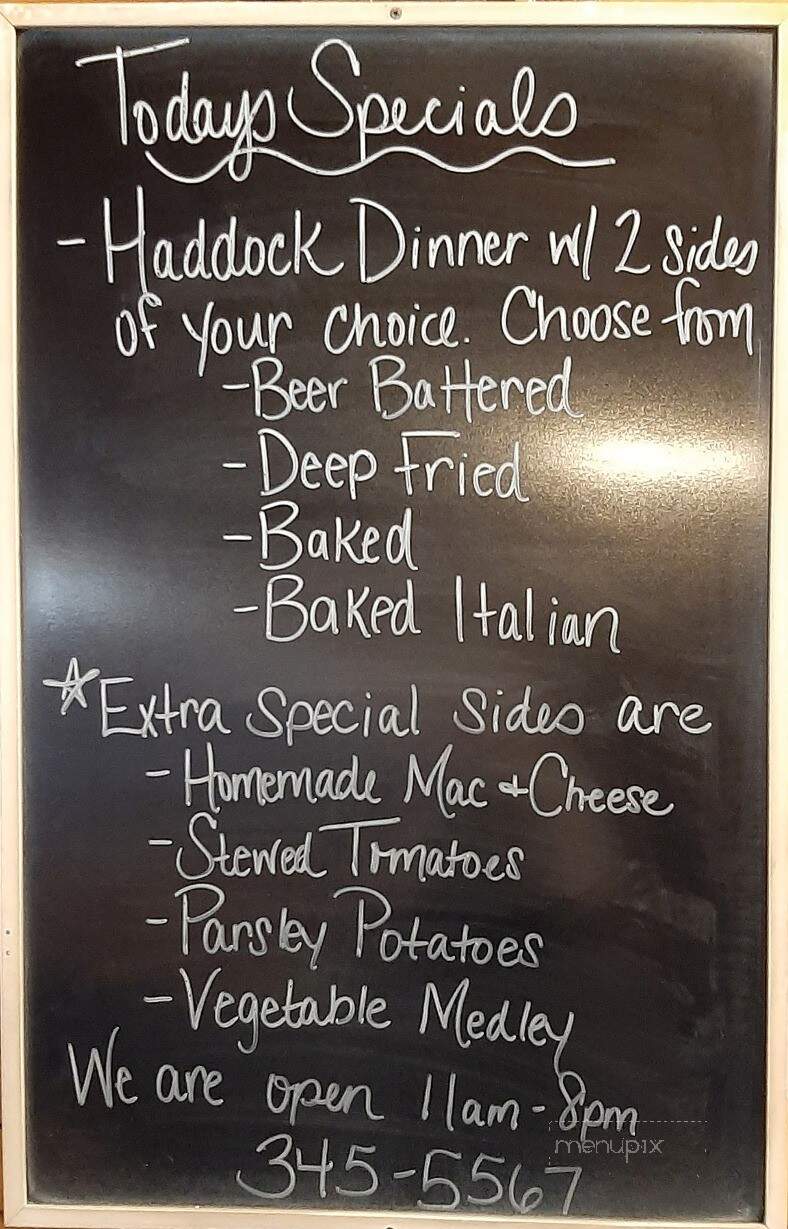 Todays Specials
- Haddock Dinner w/ 2 sides
of your choice. Choose from
- Beer Battered
- Deep Fried
- Baked
- Baked Italian
* Extra Special Sides are
- Homemade Mac + Cheese
- Stewed Tomatoes
- Parsley Potatoes
- Vegetable Medley
We are open 11am - 8pm
menupix
345-5567